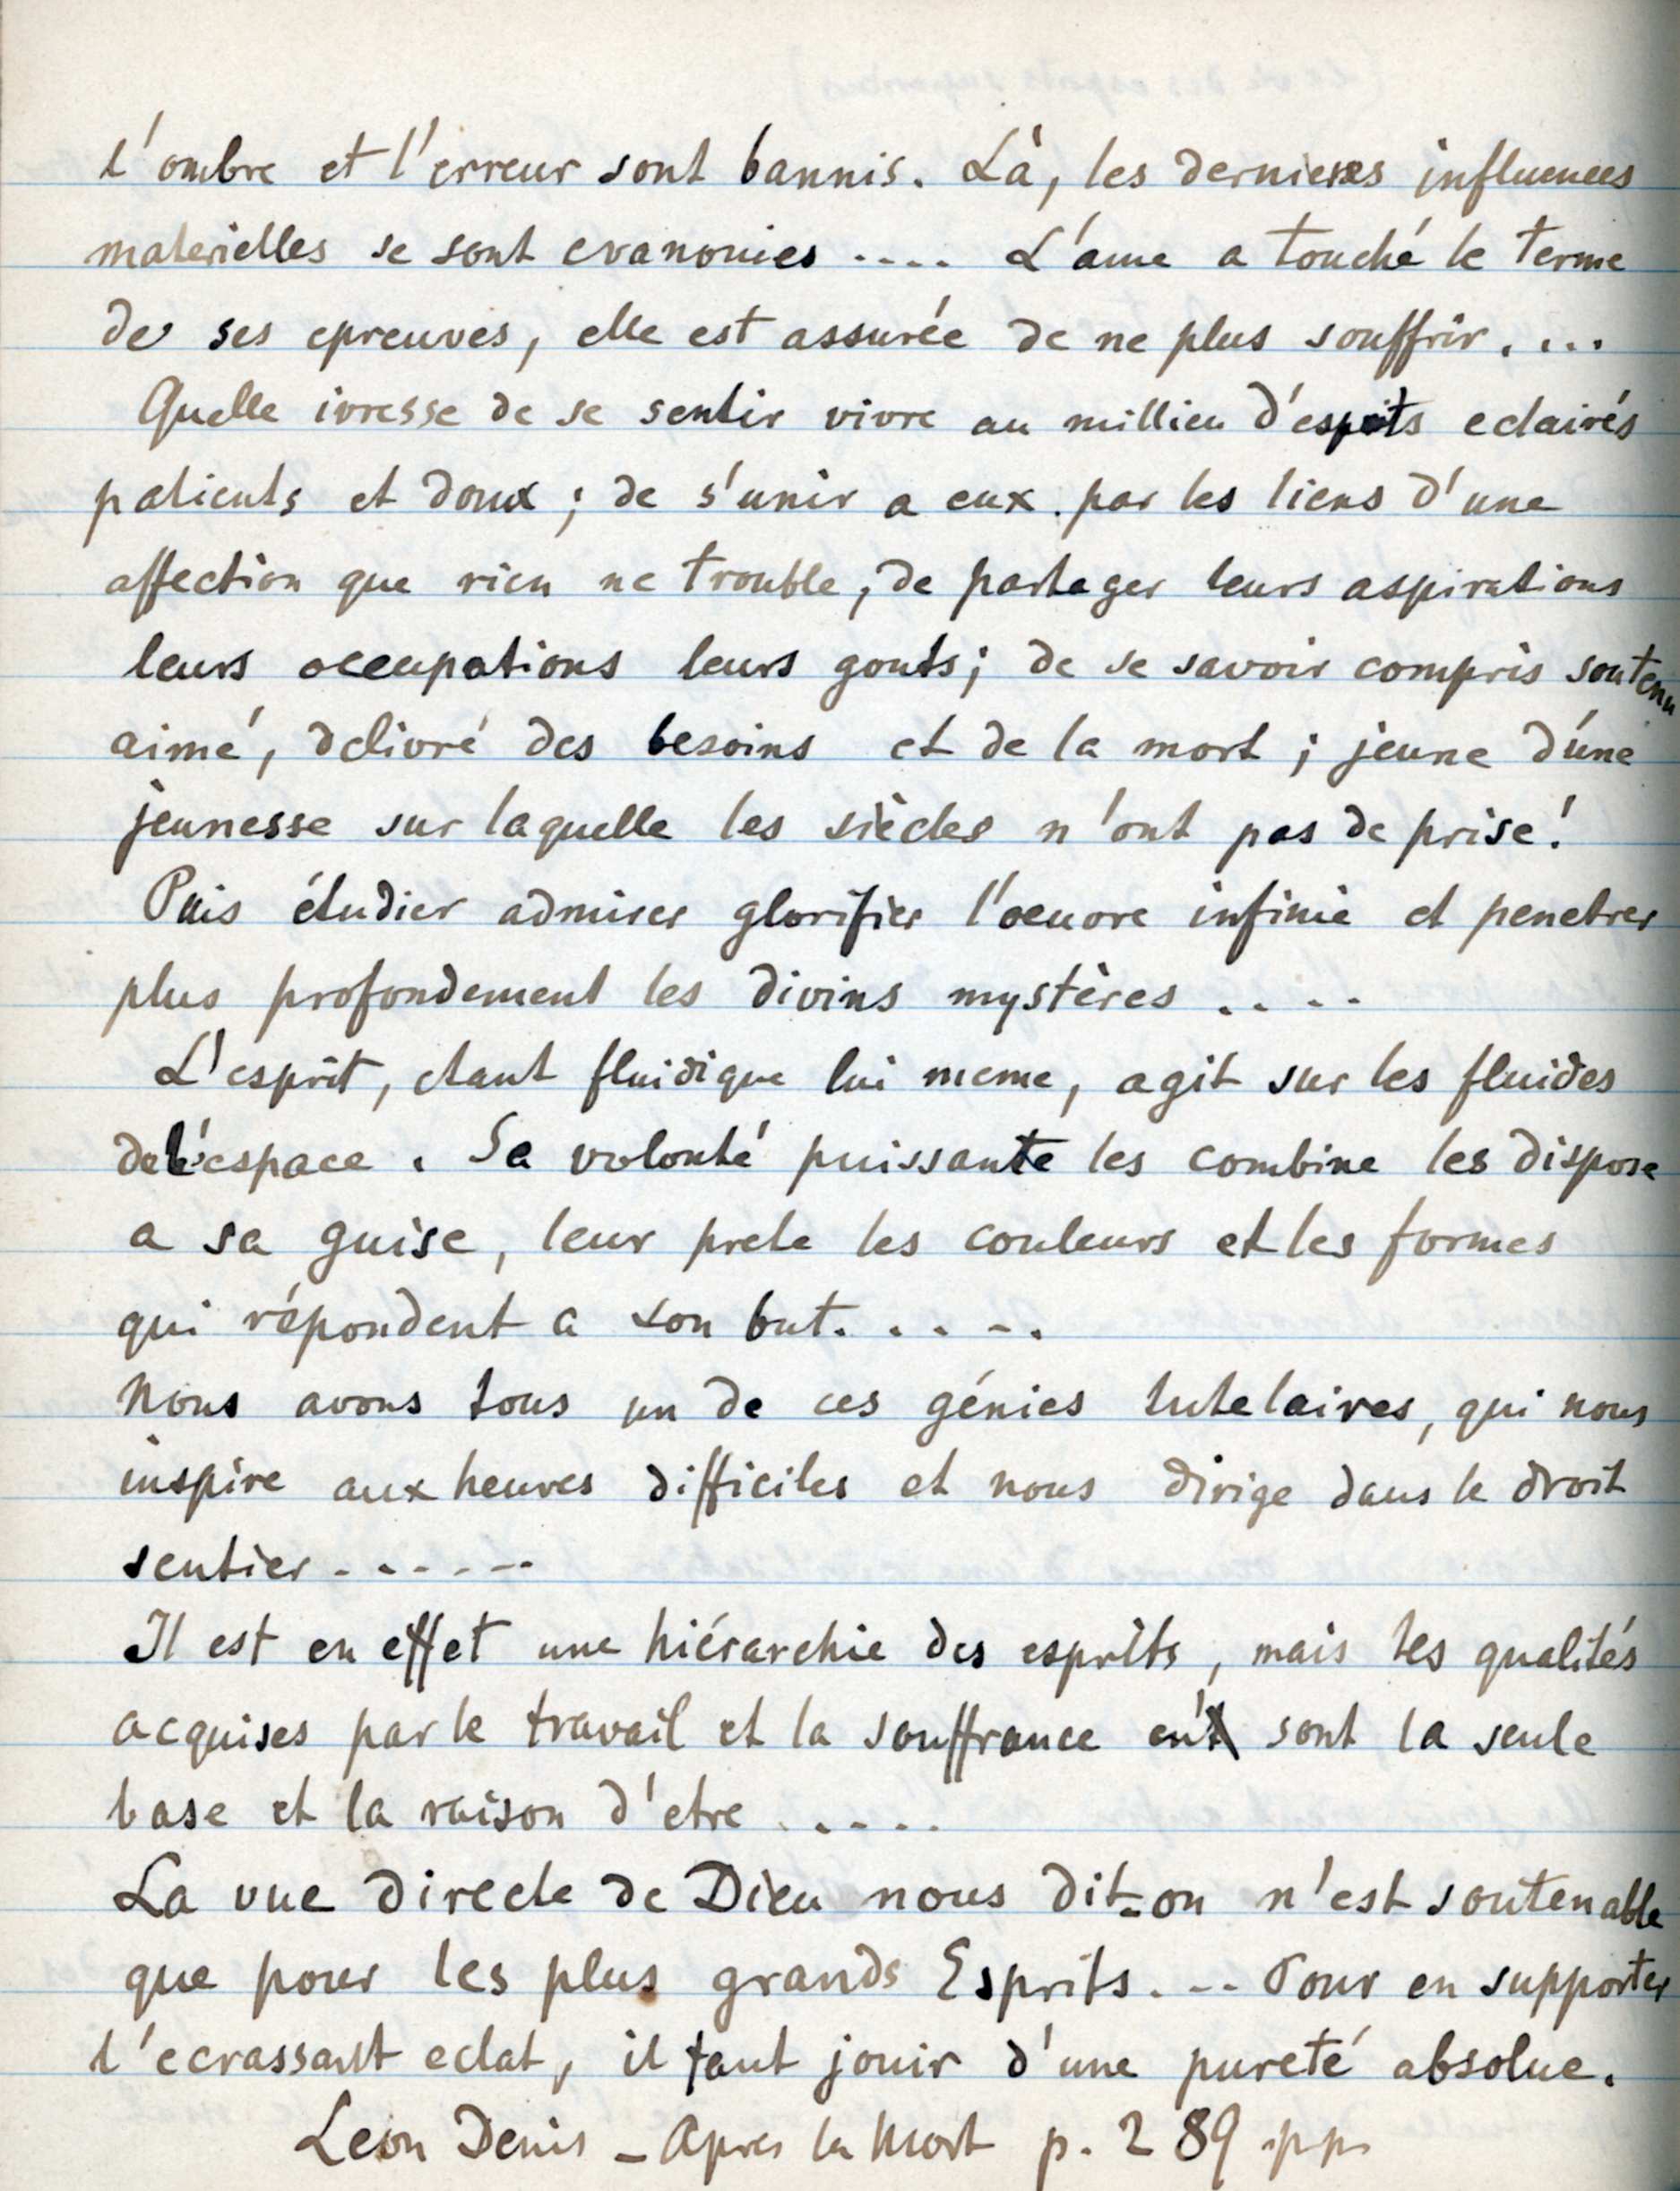 l'ombre et l'erreur sont bannis. Là, les dernieres influences
materielles se sont evanouies .... L'ame a touché le terme
de ses epreuves, elle est assurée de ne plus souffrir....
Quelle ivresse de se sentir vivre au millieu d'esprits eclairés
patients et doux ; de s'unir a eux par les liens d'une
affection que rien ne trouble ; de partager leurs aspirations
leurs occupations leurs gouts ; de se savoir compris soutenu
aimé, delivré des besoins et de la mort ; jeune d'une
jeunesse sur laquelle les siècles n'ont pas de prise !
Puis étudier admirer glorifier l'oeuvre infinie et penetrer
plus profondement les divins mystères ....
L'esprit, etant fluidique lui meme, agit sur les fluides
de l'espace. Sa volonté puissante les combine les dispose
a sa guise, leur prete les couleurs et les formes
qui répondent a son but.....
Nous avons tous un de ces génies tutelaires, qui nous
inspire aux heures difficiles et nous dirige dans le droit
sentier ......
Il est en effet une hiérarchie des esprits, mais les qualités
acquises par le travail et la souffrance en sont la seule
base et la raison d'etre .....
La vue directe de Dieu nous dit-on n'est soutenable
que pour les plus grands Esprits... Pour en supporter
l'ecrassant eclat, il faut jouir d'une pureté absolue.
Leon Denis - Apres la Mort p. 289 pp.